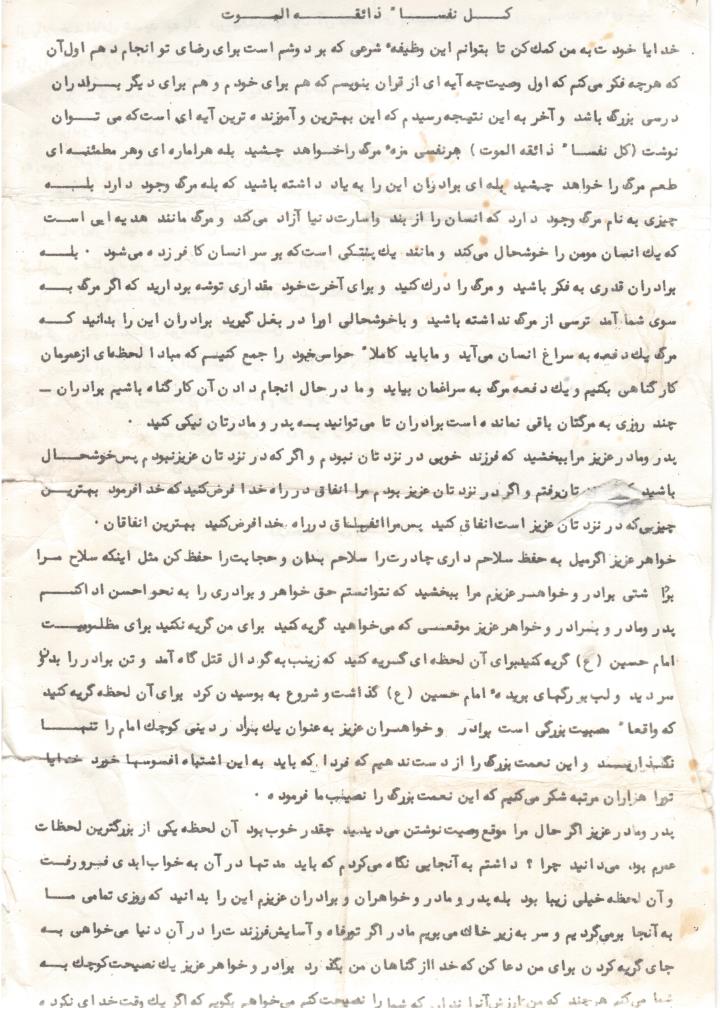 کــل نفســا ً ذائقــه المــوت
خدایا خودت به من کمک کن تا بتوانم این وظیفه ٔ شرعی که بر دوشم است برای رضای تو انجام دهم اول آن
که هرچه فکر می‌کنم که اول وصیت چه آیه ای از قران بنویسم که هم برای خودم و هم برای دیگر بــرادران
درسی بزرگ باشد و آخر به این نتیجه رسیدم که این بهترین و آموزنده ترین آیه ای است که می تــوان
نوشت (کل نفســا ً ذائقه الموت ) هرنفسی مزه ٔ مرگ راخواهد چشید بله هراماره ای وهر مطمئنــه ای
طعم مرگ را خواهد چشید بله ای برادران این را به یاد داشته باشید که بله مرگ وجود دارد بلــه
چیزی به نام مرگ وجود دارد که انسان را از بند واسارت دنیا آزاد می‌کند و مرگ مانند هدیه ایی است
که یك انسان مومن را خوشحال می‌کند و مانند یك پتکی است که بر سر انسان کافر زده می‌شود ۰ بلــه
برادران قدری به فکر باشید و مرگ را درك کنید و برای آخرت خود مقداری توشه بردارید که اگر مرگ بــه
سوی شما آمد ترسی از مرگ نداشته باشید و باخوشحالی اورا در بغل گیرید برادران این را بدانید کــه
مرگ یك دفعه به سراغ انسان می‌آید و ماباید کاملا ً حواس خود را جمع کنیــم که مبادا لحظه‌ای ازعمرمان
کار گناهی بکنیم و یك دفعه مرگ به سراغمان بیاید و ما در حال انجام دادن آن کار گناه باشیم برادران ــ
چند روزی به مرگتان باقی نمانده است برادران تا می‌توانید بــه پدر و مادرتان نیکی کنید ۰
پدر ومادر عزیز مرا ببخشید که فرزند خوبی در نزدتان نبودم و اگر که در نزدتان عزیزنبودم پس خوشحــال
باشید که تان رفتم و اگر در نزدتان عزیز بودم مرا انفاق در راه خدا فرض کنید که خدا فرمود بهتریــن
چیزیی که در نزدتان عزیز است انفاق کنید پس مرا انفاق درراه خدا فرض کنید بهترین انفاقان ۰
خواهر عزیز اگر میل به حفظ سلاحم داری چادرت را سلاحم بدان و حجابت را حفظ کن مثل اینکه سلاح مــرا
شتی برادر و خواهــر عزیزم مرا ببخشید که نتوانستم حق خواهر و برادری را به نحو احسن ادا کنــم
پدر ومادر و بــرادر و خواهر عزیز موقعــی که می‌خواهید گریه کنید برای من گریه نکنید برای مظلومیــت
امام حسین (ع) گریه کنید برای آن لحظه ای گــریه کنید که زینب به گودال قتل گاه آمد و تن برادر را بدون
سر دید و لب بر رگهای بریده ٔ امام حسین (ع) گذاشت و شروع به بوسیدن کرد برای آن لحظه گریه کنید
که واقعا ً مصیبت بزرگی است برادر و خواهــران عزیز به عنوان یك برادر دینی کوچك امام را تنهــا
نگذاریــد و این نعمت بزرگ را از دست ندهیم که فردا که باید به این اشتباه افسوسها خورد خدایا
تورا هزاران مرتبه شکر می‌کنیم که این نعمت بزرگ را نصیب ما فرموده ۰
پدر ومادر عزیز اگر حال مرا موقع وصیت نوشتن می‌دیدید چقدر خوب بود آن لحظه یکی از بزرگترین لحظات
عمرم بود، می‌دانید چرا ؟ داشتم به آنجایی نگاه می‌کردم که باید مدتها در آن به خواب ابدی فــرو رفــت
و آن لحظه خیلی زیبا بود بله پدر و مادر و خواهران و برادران عزیزم این را بدانید که روزی تمامی مــا
به آنجا برمی‌گردیم و سر به زیر خاك می‌بریم مادر اگر تو رفاه و آسایش فرزندت را در آن دنیا می‌خواهی بــه
جای گریه کردن برای من دعا کن که خدا از گناهان من بگذرد برادر و خواهر عزیز یك نصیحت کوچك بــه
شما می‌کنم هرچند که من ارزش آنرا ندارم که شما را نصیحت کنم می‌خواهم بگویم که اگر یك وقت خدای نکرده